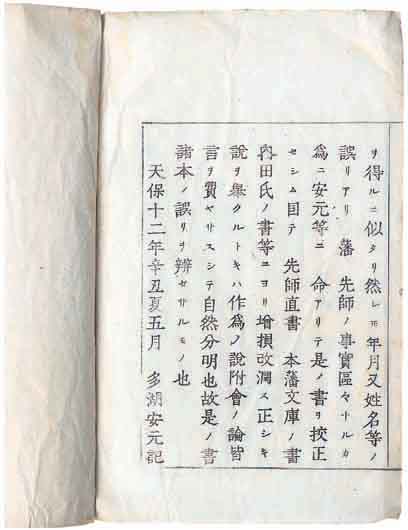 ヲ得ルニ似タリ然レ𪜈年月又姓名等ノ
誤リアリ 藩 先師ノ事實區々ナルカ
為ニ安元等ニ 命アリテ是ノ書ヲ挍正
セシム因テ 先師直書 本藩文庫ノ書
內田氏ノ書等ニヨリ增損改潤ス正シキ
說ヲ舉クルトキハ作為ノ說附會ノ論皆
言ヲ費ヤサスシテ自然分明也故是ノ書
諸本ノ誤リヲ辨セサルモノ也
天保十二年辛丑夏五月 多湖安元記